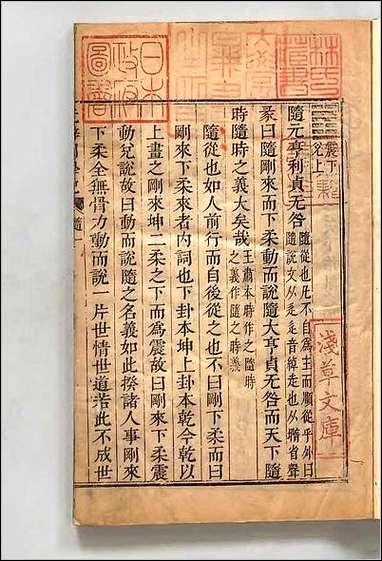 林氏藏書
淺草文庫
日本政府圖書
震下兌上
隨元亨利貞无咎隨從也凡不自為主而順從乎外曰隨說文从辵辵音綽走也从隋省聲
彖曰隨剛來而下柔動而說隨大亨貞无咎而天下隨
時隨時之義大矣哉王肅本時作之隨時之義作隨之時義
隨從也如人前行而自後從之也不曰剛下柔而曰
剛來下柔來者內詞也下卦本坤上卦本乾今乾以
上畫之剛來坤二柔之下而為震故曰剛來下柔震
動兌說故曰動而說隨之名義如此揆諸人事剛來
下柔全無骨力動而說一片世情世道若此不成世
隨一